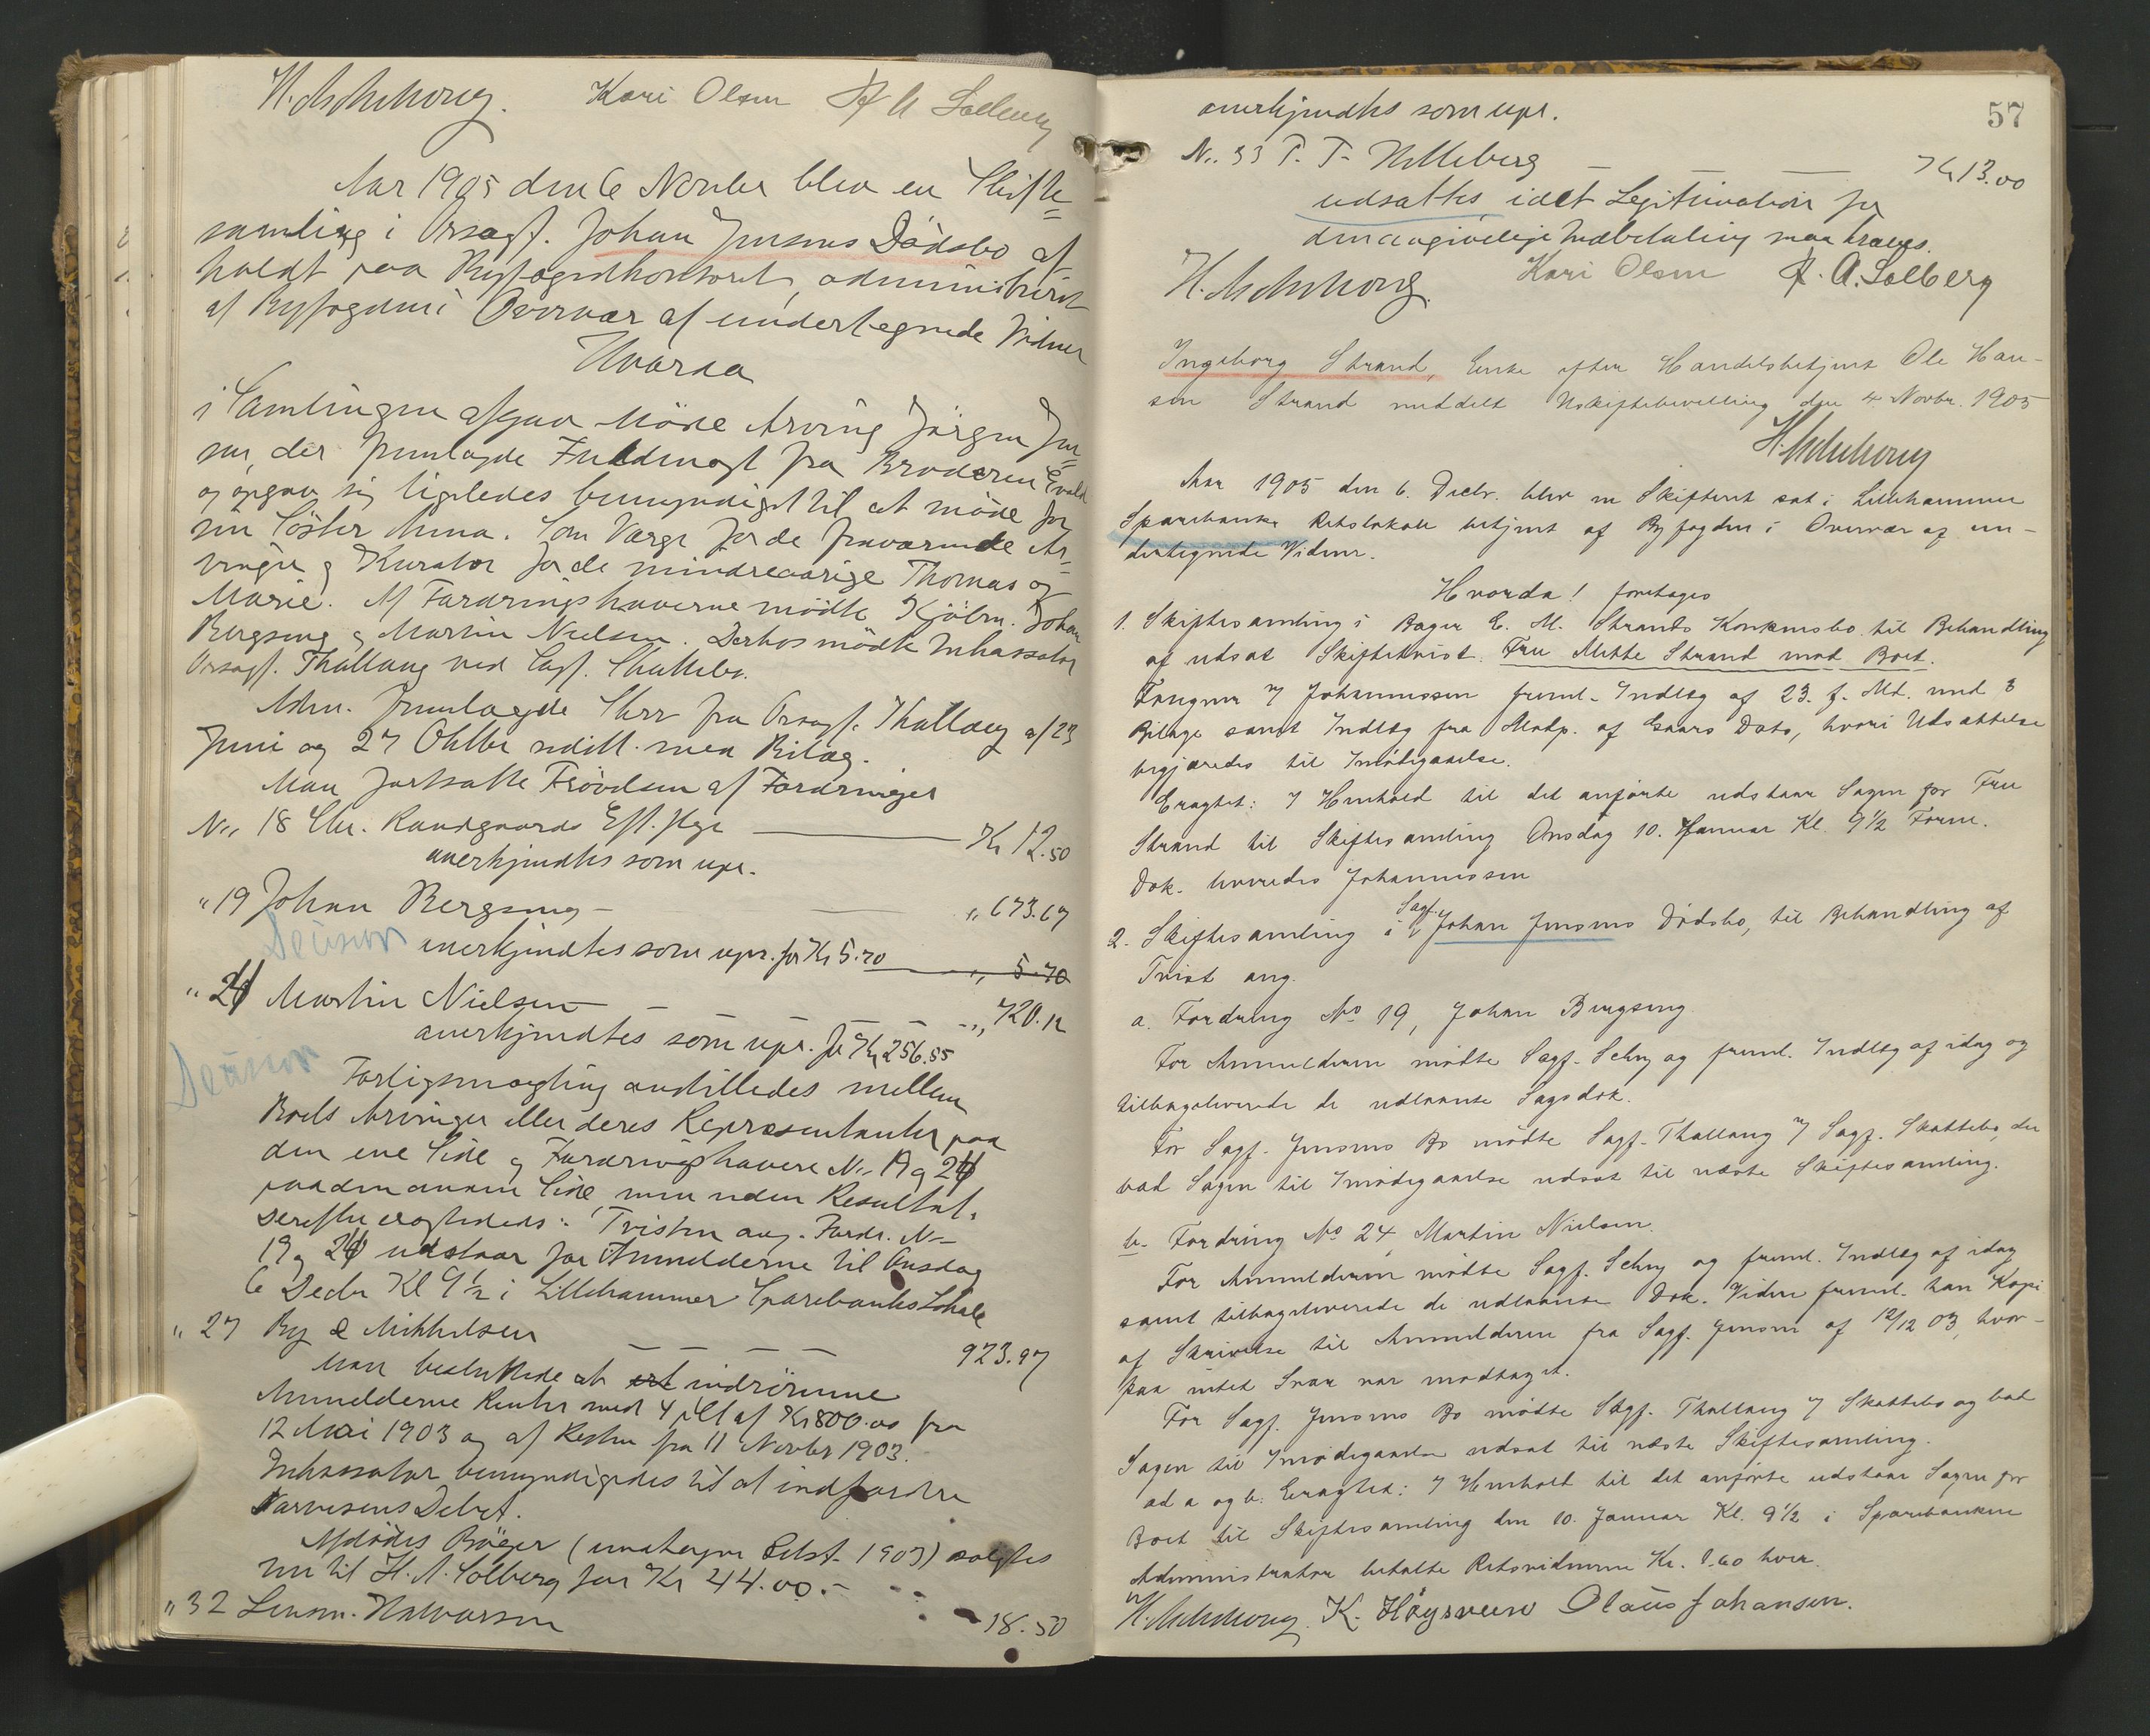 Kari Olsen H A Solberg
Aar 1905 den 6 Novber blev en Skifte=
samling i Ovrsagf. Johan Jensens Dødsbo af-
holdt paa Byfogedkontoret, administreret
af Byfogden i Overvær af undertegnede Vidner
Hvorda
i Samlingen afgav Møde Arving Jørgen Jen=
sen, der fremlagde Fuldmagt fra Broderen Evald
og opgav sig ligeledes bemyndiget til at møde for
sin Søster Anna. Som Værge for de fraværende Ar=
vinger og Kurator for de mindreaarige Thomas og
Marie. Af Fordringshaverne mødte Kjøbm. Johan
Bergseng og Martin Nielsen. Derhos mødte Inkassator
Ovrsagf. Thallaug ved Sagf. Skattebo.
Adm. fremlagde Skr fra Ovrsagf. Thallaug af 23
Juni og 27 Oktbr sidstl. med Bilag.
Man fortsatte Prøvelsen af Fordringer
No 18 Chr. Randgaards Eff. flgr Kr 12.50
anerkjendtes som upr.
" 19 Johan Bergseng - " 673.67
Decision anerkjendtes som upr. for Kr 5.70 " 5.70
" 24 Martin Nielsen - " 720.12
anerkjendtes som upr. for Kr 256.55
Decision
Forligsmægling anstilledes mellem
Boets Arvinger eller deres Repræsentanter paa
den ene Side og Fordringshavere No 19 og 24
paa den anden Side, men uden Resultat.
Derefter eragtedes: Tvisten ang. Fordr. No
19 og 24 udstaar for Anmelderne til Onsdag
6 Decbr Kl 9½ i Lillehammer Sparebanks Lokale
" 27 By & Mikkelsen 923.97
Man besluttede at indrømme
Anmelderne Renter med 4 pCt af Kr 800.00 fra
12 Mai 1903 og af Resten fra 11 Novbr 1903.
Inkassator bemyndigedes til at indfordre
Narvesens Debet.
Afdødes Bøger ( Retst. 1903) solgtes
nu til H. A. Solberg for Kr 44.00.-
" 32 Lensm. Halvorsen - 18.50
57
anerkjendtes som upr.
No. 33 P. T. Hilleberg Kr 13.00
udsattes idet Legitimation for
den angivelige Indbetaling maa kræves.
Kari Olsen H. A. Solberg
Ingeborg Strand, Enke efter Handelsbetjent Ole Han-
sen Strand meddelt Uskiftebevilling den 4 Novbr. 1905
Aar 1905 den 6. Decbr. blev en Skifteret sat i Lillehammer
Sparebanks Retslokale betjent af Byfogden i Overvær af un-
dertegnede Vidner.
Hvorda! foretages
1. Skiftesamling i Bager E. M. Strands Konkursbo til Behandling
af udsat Skiftetvist. Fru Mette Strand mod Boet.
Fougner ved Johannessen freml. Indlæg af 23. f. Md. med 3
Bilage samt Indlæg fra Modp. af Gaars Dato, hvori Udsættelse
begjæredes til Imødegaaelse.
Eragtet: I Henhold til det anførte udstaar Sagen for Fru
Strand til Skiftesamling Onsdag 10. Januar Kl. 9½ Form.
Dok. leveredes Johannessen
2. Skiftesamling i Sagf. Johan Jensens Dødsbo, til Behandling af
Tvist ang.
a. Fordring No 19, Johan Bergseng
For Anmelderen mødte Sagf. Selny og freml. Indlæg af idag og
tilbageleverede de udlaante Sagsdok.
For Sagf. Jensens Bo mødte Sagf. Thallaug ved Sagf. Skattebo, der
bad Sagen til Imødegaaelse udsat til næste Skiftesamling.
b. Fordring No 24, Martin Nielsen.
For Anmelderen mødte Sagf. Selny og freml. Indlæg af idag
samt tilbageleverede de udlaante Dok. Videre freml. han Kopi
af Skrivelse til Anmelderen fra Sagf. Jensen af 12/12 03, hvor-
paa intet Svar var modtaget.
For Sagf. Jensens Bo mødte Sagf. Thallaug ved Skattebo og bad
Sagen til Imødegaaelse udsat til næste Skiftesamling.
ad a og b: Eragtet: I Henhold til det anførte udstaar Sagen for
Boet til Skiftesamling den 10. Januar Kl. 9½ i Sparebanken
Administrator betalte Retsvidnerne Kr. 0.60 hver.
K. Høysveen Olaus Johansen.